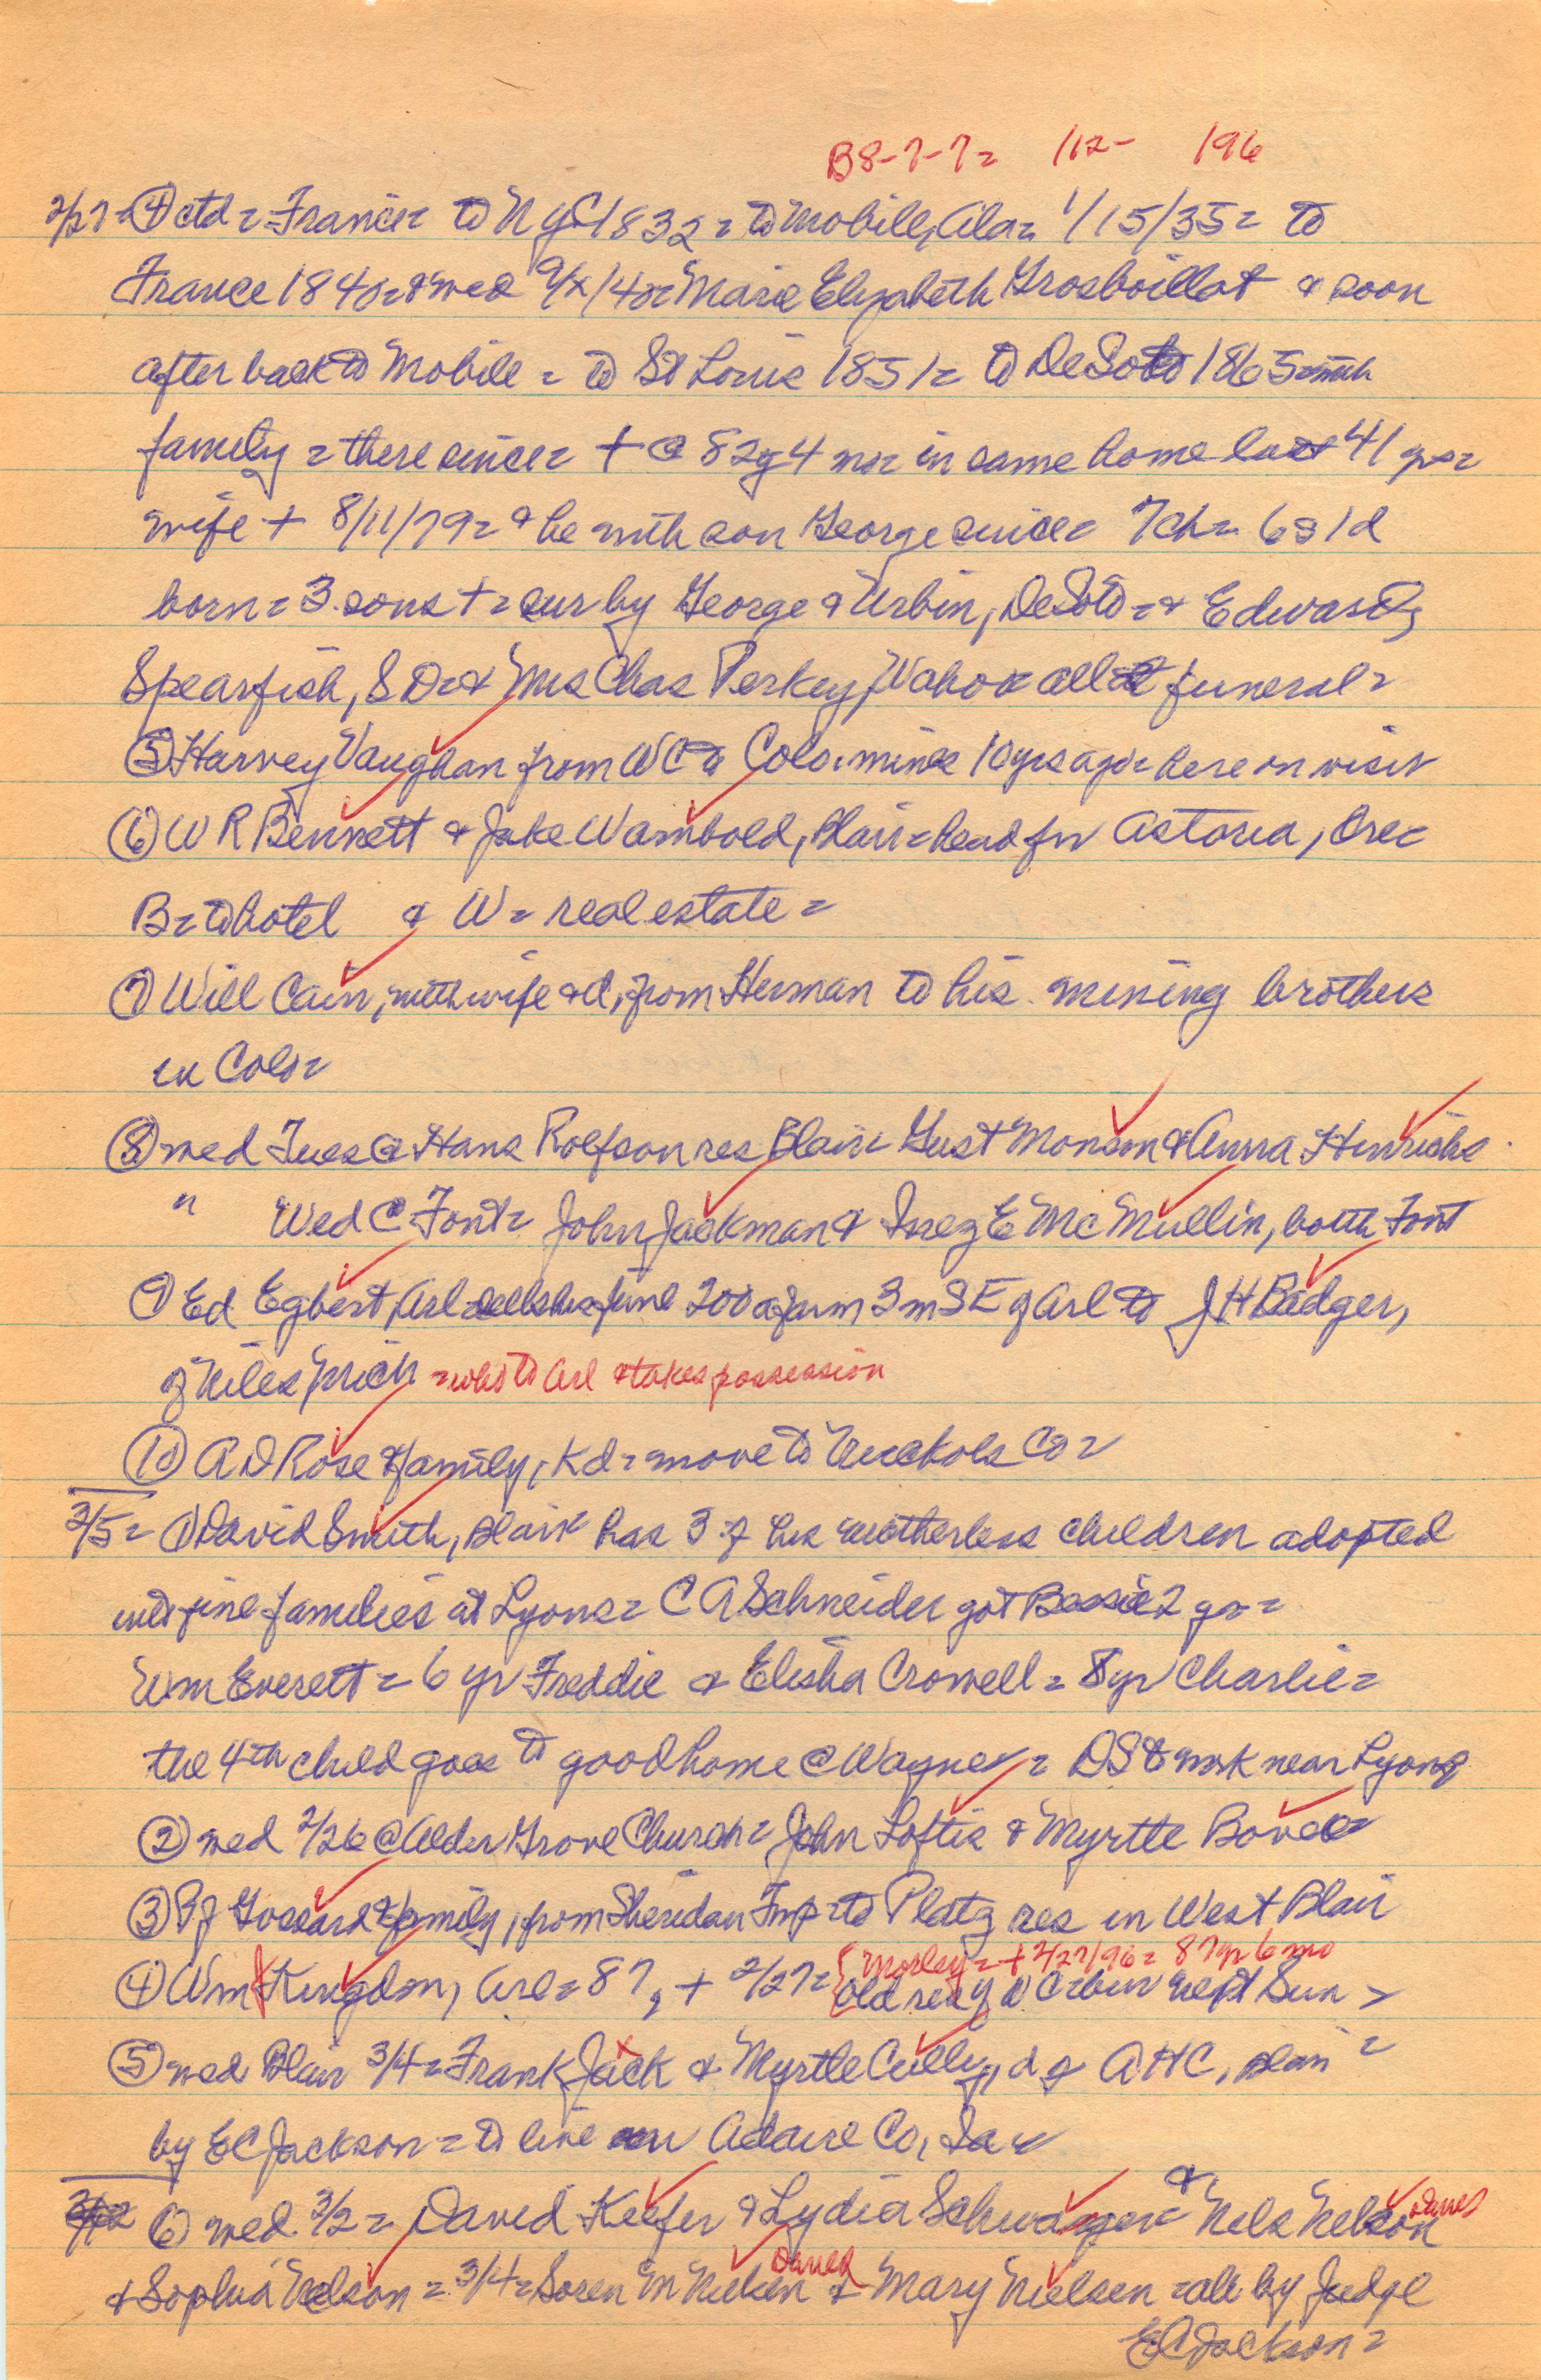 B8-7-7= 112- 196
2/27= ④ ctd = France to NYC 1832 = to Mobile, Ala = 1/15/35 = to
France 1840 = & med 9/x/40 = Marie Elizabeth Grosboillot & soon
after back to Mobile = to St Louis 1851 = to DeSoto 1865 = with
family = there since = + @ 82y 4 mo = in same home last 41 yrs =
wife + 8/11/79 = & he with son George since = 7 ch = 6s 1d
born = 3 sons + = sur by George & Urbin, DeSoto = & Edward,
Spearfish, S D = & Mrs Chas Perkey, Waho = all at funeral =
⑤ Harvey Vaughan from WC to Colo. mines 10 yrs ago = here on visit
⑥ W R Bennett & Jake Wambold, Blair = head for Astoria, Ore =
B = to hotel & W = real estate =
⑦ Will Cain, with wife & d, from Herman to his mining brothers
in Colo =
⑧ med Tues @ Hans Rolfson res Blair = Gust Monson & Anna Hinrichs
" Wed @ Font = John Jackman & Inez E McMullin, both Font
⑨ Ed Egbert, Arl = sells his fine 200 a farm 3 m SE of Arl to J H Badger,
of Niles, Mich = who to Arl & takes possession
⑩ A D Rose & family, Kd = move to Nuckols Co =
3/5 = ① David Smith, Blair = has 3 of his motherless children adopted
into fine families at Lyons = C A Schneider got Bessie 2 yr =
Wm Everett = 6 yr Freddie & Elisha Crowell = 8 yr Charlie =
the 4th child goes to good home @ Wayne = DS to work near Lyons
② med 2/26 @ Alder Grove Church = John Loftis & Myrtle Bovee =
③ Gossard & family, from Sheridan Twp = to Platz res in West Blair
④ Wm Kingdon, Arl = 87, + 2/27 = { Morley = + 2/27/96 = 87 yr 6 mo
old res of W C = bur Sun =
⑤ med Blair 3/4 = Frank Jack & Myrtle Cully, d of A H C, Blair =
by E C Jackson = to live in Adair Co, Ia =
3/12 ⑥ med 3/2 = David Keefer & Lydia Schwager = & Nels Nelson Danes
& Sophia Nelson = 3/4 = Soren M Nielsen Danes & Mary Nielsen = all by Judge
E C Jackson =